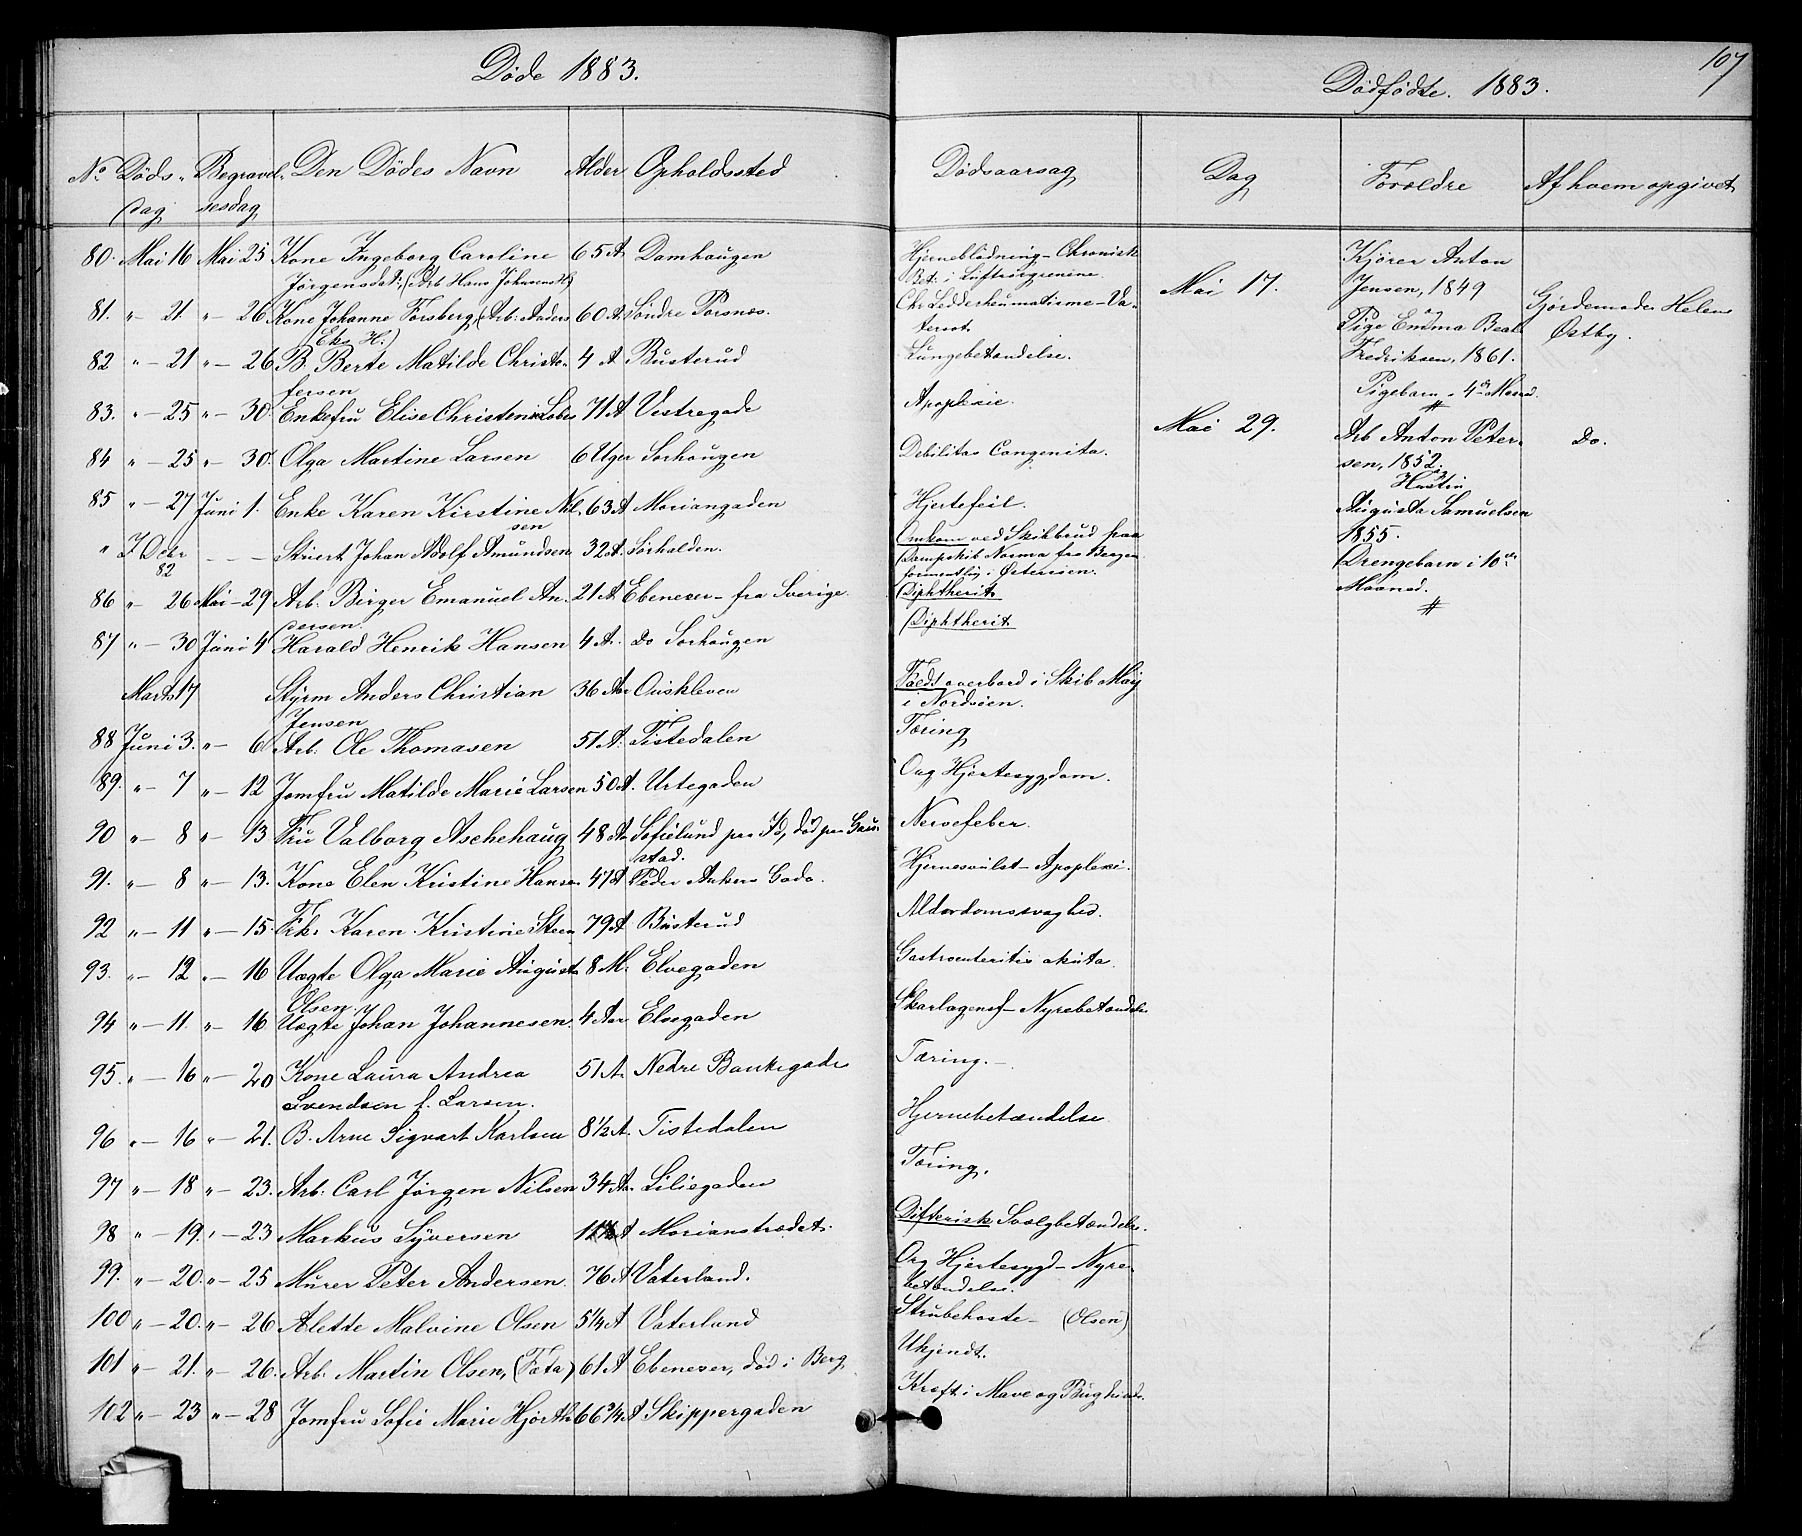 107
Døde 1883.
Dødfødte. 1883.
No Døds- Begravel- Den Dødes Navn Alder Opholdssted Dødsaarsag Dag Forældre Af hvem opgivet
dag sesdag
80. Mai 16 Mai 25 Kone Ingeborg Caroline 65 A Damhaugen Hjerneblødning - Chronisk
Jørgensdat: (Arb Hans Johansen H) Bet. i Luftrørgrenene.
81. " - 21. " - 26 Kone Johanne Forsberg, (Arb: Anders 60 A. Søndre Torsnæs. Chr Ledderheumatisme - Va-
Eks H:) tersot.
82 " - 21 " - 26 B. Berte Matilde Christo- 4 A Busterud Lungebetændelse.
fersen
83. " - 25 " - 30. Enkefru Elise Christine 71 A Vestregade Apoplexie.
84 " - 25 " - 30. Olga Martine Larsen 6 Uger Sorhaugen Debilitas Congenita.
85 " - 27 Juni 1. Enke Karen Kirstine Nil- 63 A Moriangaden Hjertefeil.
sen
" 7 Octr - - - Stuert Johan Adolf Amundsen 32 A. Sørhalden. Omkom ved Skibbrud paa
82 Dampskib Norma fra Bergen
formentlig i Østersøen.
86 " - 26 Mai - 29 Arb. Birger Emanuel An- 21 A. Ebeneser - fra Sverige. Diphtherit
dersen.
87 " - 30 Juni 4 Harald Henrik Hansen 4 A. do Sorhaugen Diphtherit
Marts 17 Styrm Anders Christian 36 Aar Ouiskleven Faldt overbord i Skib Maij
Jensen i Nordsøen.
88 Juni 3. " - 6 Arb. Ole Thomasen 51 A. Tistedalen Tæring
89. " - 7 " - 12 Jomfru Matilde Marie Larsen 50 A. Urtegaden Org Hjertesygdom.
90 " - 8 " - 13 Fru Valborg Aschehaug 48 Aa Sofielund pr Id, død paa Gau- Nervefeber.
stad.
91. " - 8 " - 13. Kone Elen Kristine Hansen 47 A Peder Ankers Gade. Hjernesvulst - Apoplexi.
92 " - 11 " - 15. Frk. Karen Kristine Steen 79 A Busterud Alderdomssvaghed.
93. " - 12 " - 16 Uægte Olga Marie Augusta 8 M. Elvegaden Gastroenteritis akuta.
Olsen
94 " - 11. " - 16 Uægte Johan Johannesen. 4 Aar Elvegaden Skarlagensf - Nyrebetændelse
95. " - 16 " - 20 Kone Laura Andrea 51 A. Nedre Bankegade Tæring. -
Svendsen f. Larsen.
96 " - 16 " - 21. B. Arne Sigvart Karlsen 8 1/2 A. Tistedalen Hjernebetændelse
97 " - 18 " - 23. Arb. Carl Jørgen Nilsen 34 Aa. Liliegaden Tæring.
98 " - 19. " - 23 Markus Syversen A Morianstrædet. Difterisk Svælgbetændelse.
99. " - 20. " - 25 Murer Peter Andersen. 76 A Vaterland. Org Hjertesygd - Nyre-
betændelse.
100 " - 20. " - 26 Alette Malvine Olsen 5 1/4 A Vaterland Strubehoste - (Olsen)
101 " - 21. " - 26. Arb. Martin Olsen, (Fæta) 61 A Ebeneser, død i Berg Ukjendt.
102 " - 23 " - 28 Jomfru Sofie Marie Hjorth 66 3/4 A Skippergaden Kræft i Mave og Bughinde.
Mai 17. Kjører Anton
Jensen, 1849
og
Pige Emma Beate
Fredriksen, 1861.
Pigebarn - 4de Maaned.
#
Gjordemoder Helene
Østby.
Mai 29. Arb Anton Peter- Do.
sen, 1852.
og
Hustru
Augusta Samuelsen
1855.
Drengebarn i 10de
Maaned.
#